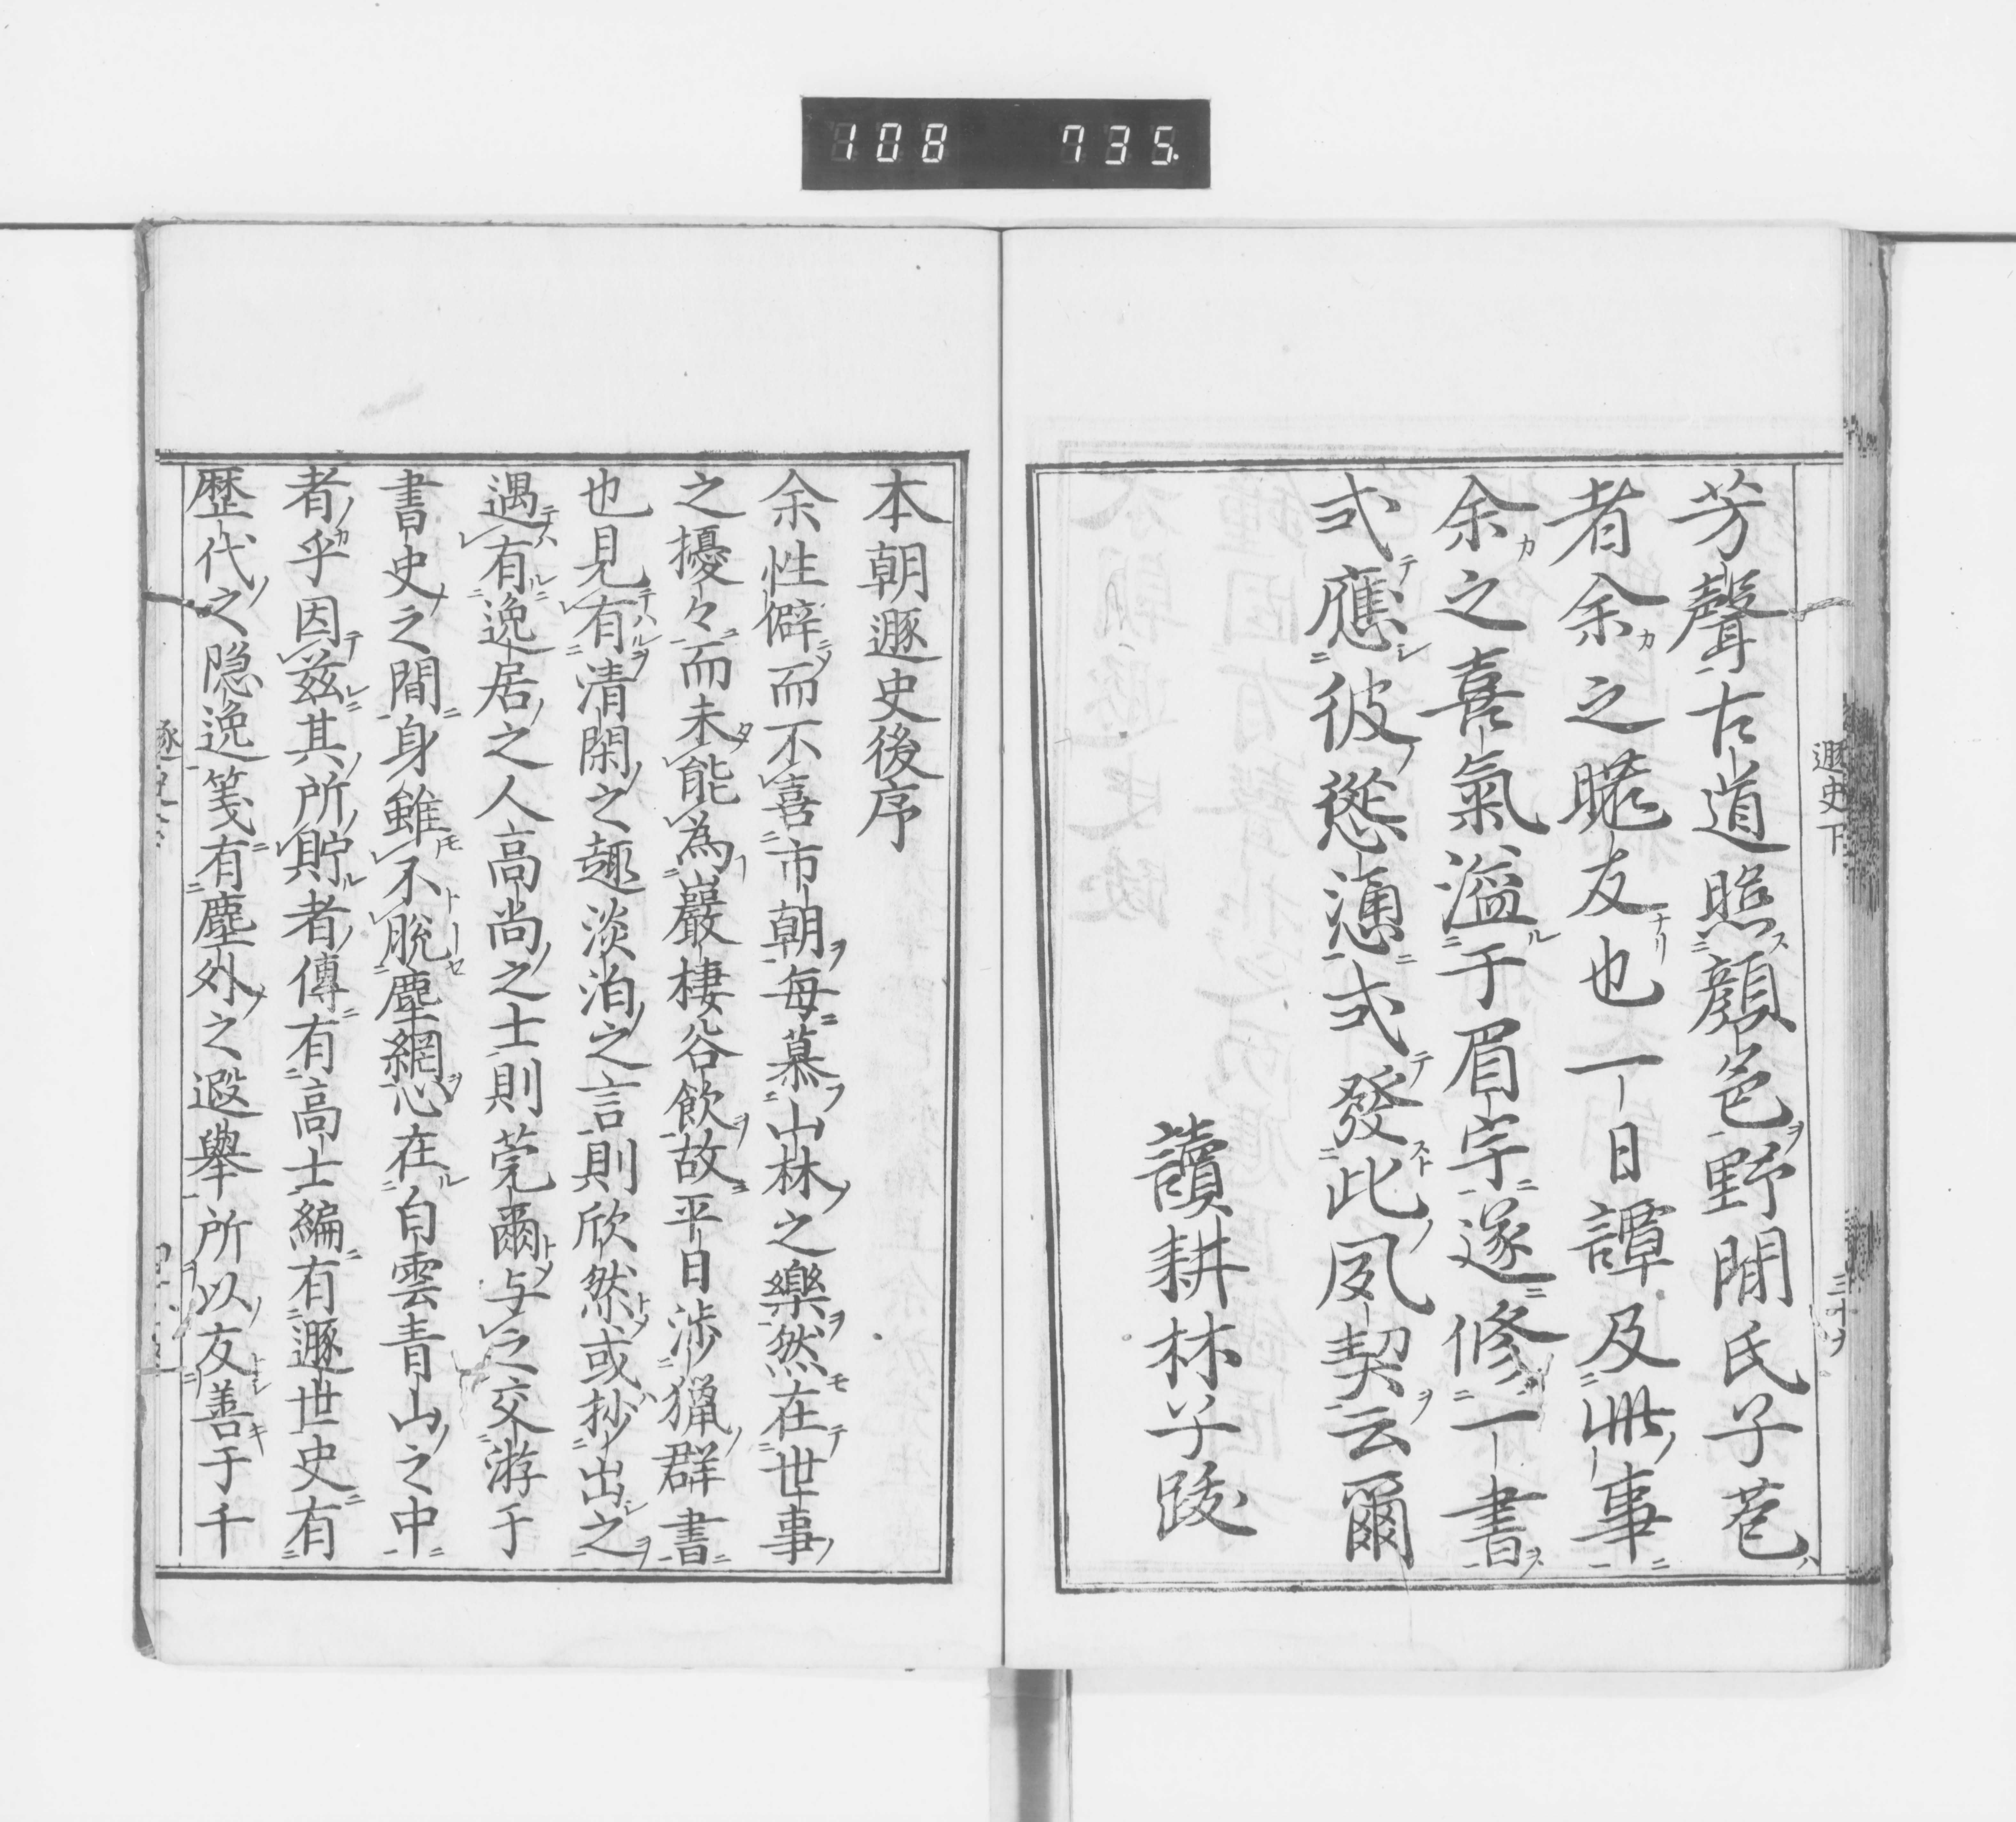 108 735.
遯史下
芳聲古道照顏色野間氏子苞
者余之䁥友也一日譚及此事
余之喜氣溢于眉宇遂修一書
式應彼慫慂式發此夙契云爾
讀耕林子䟦
本朝遯史後序
余性僻而不喜市朝每慕山林之樂然在世事
之擾々而未能為巖棲谷飲故平日涉獵群書
也見有清閑之趣淡泊之言則欣然或抄出之
遇有逸居之人高尚之士則莞爾与之交游于
書史之間身雖不脫塵網心在白雲青山之中
者乎因茲其所貯者傳有高士編有遯世史有
歷代之隠逸箋有塵外之遐舉所以友善于千